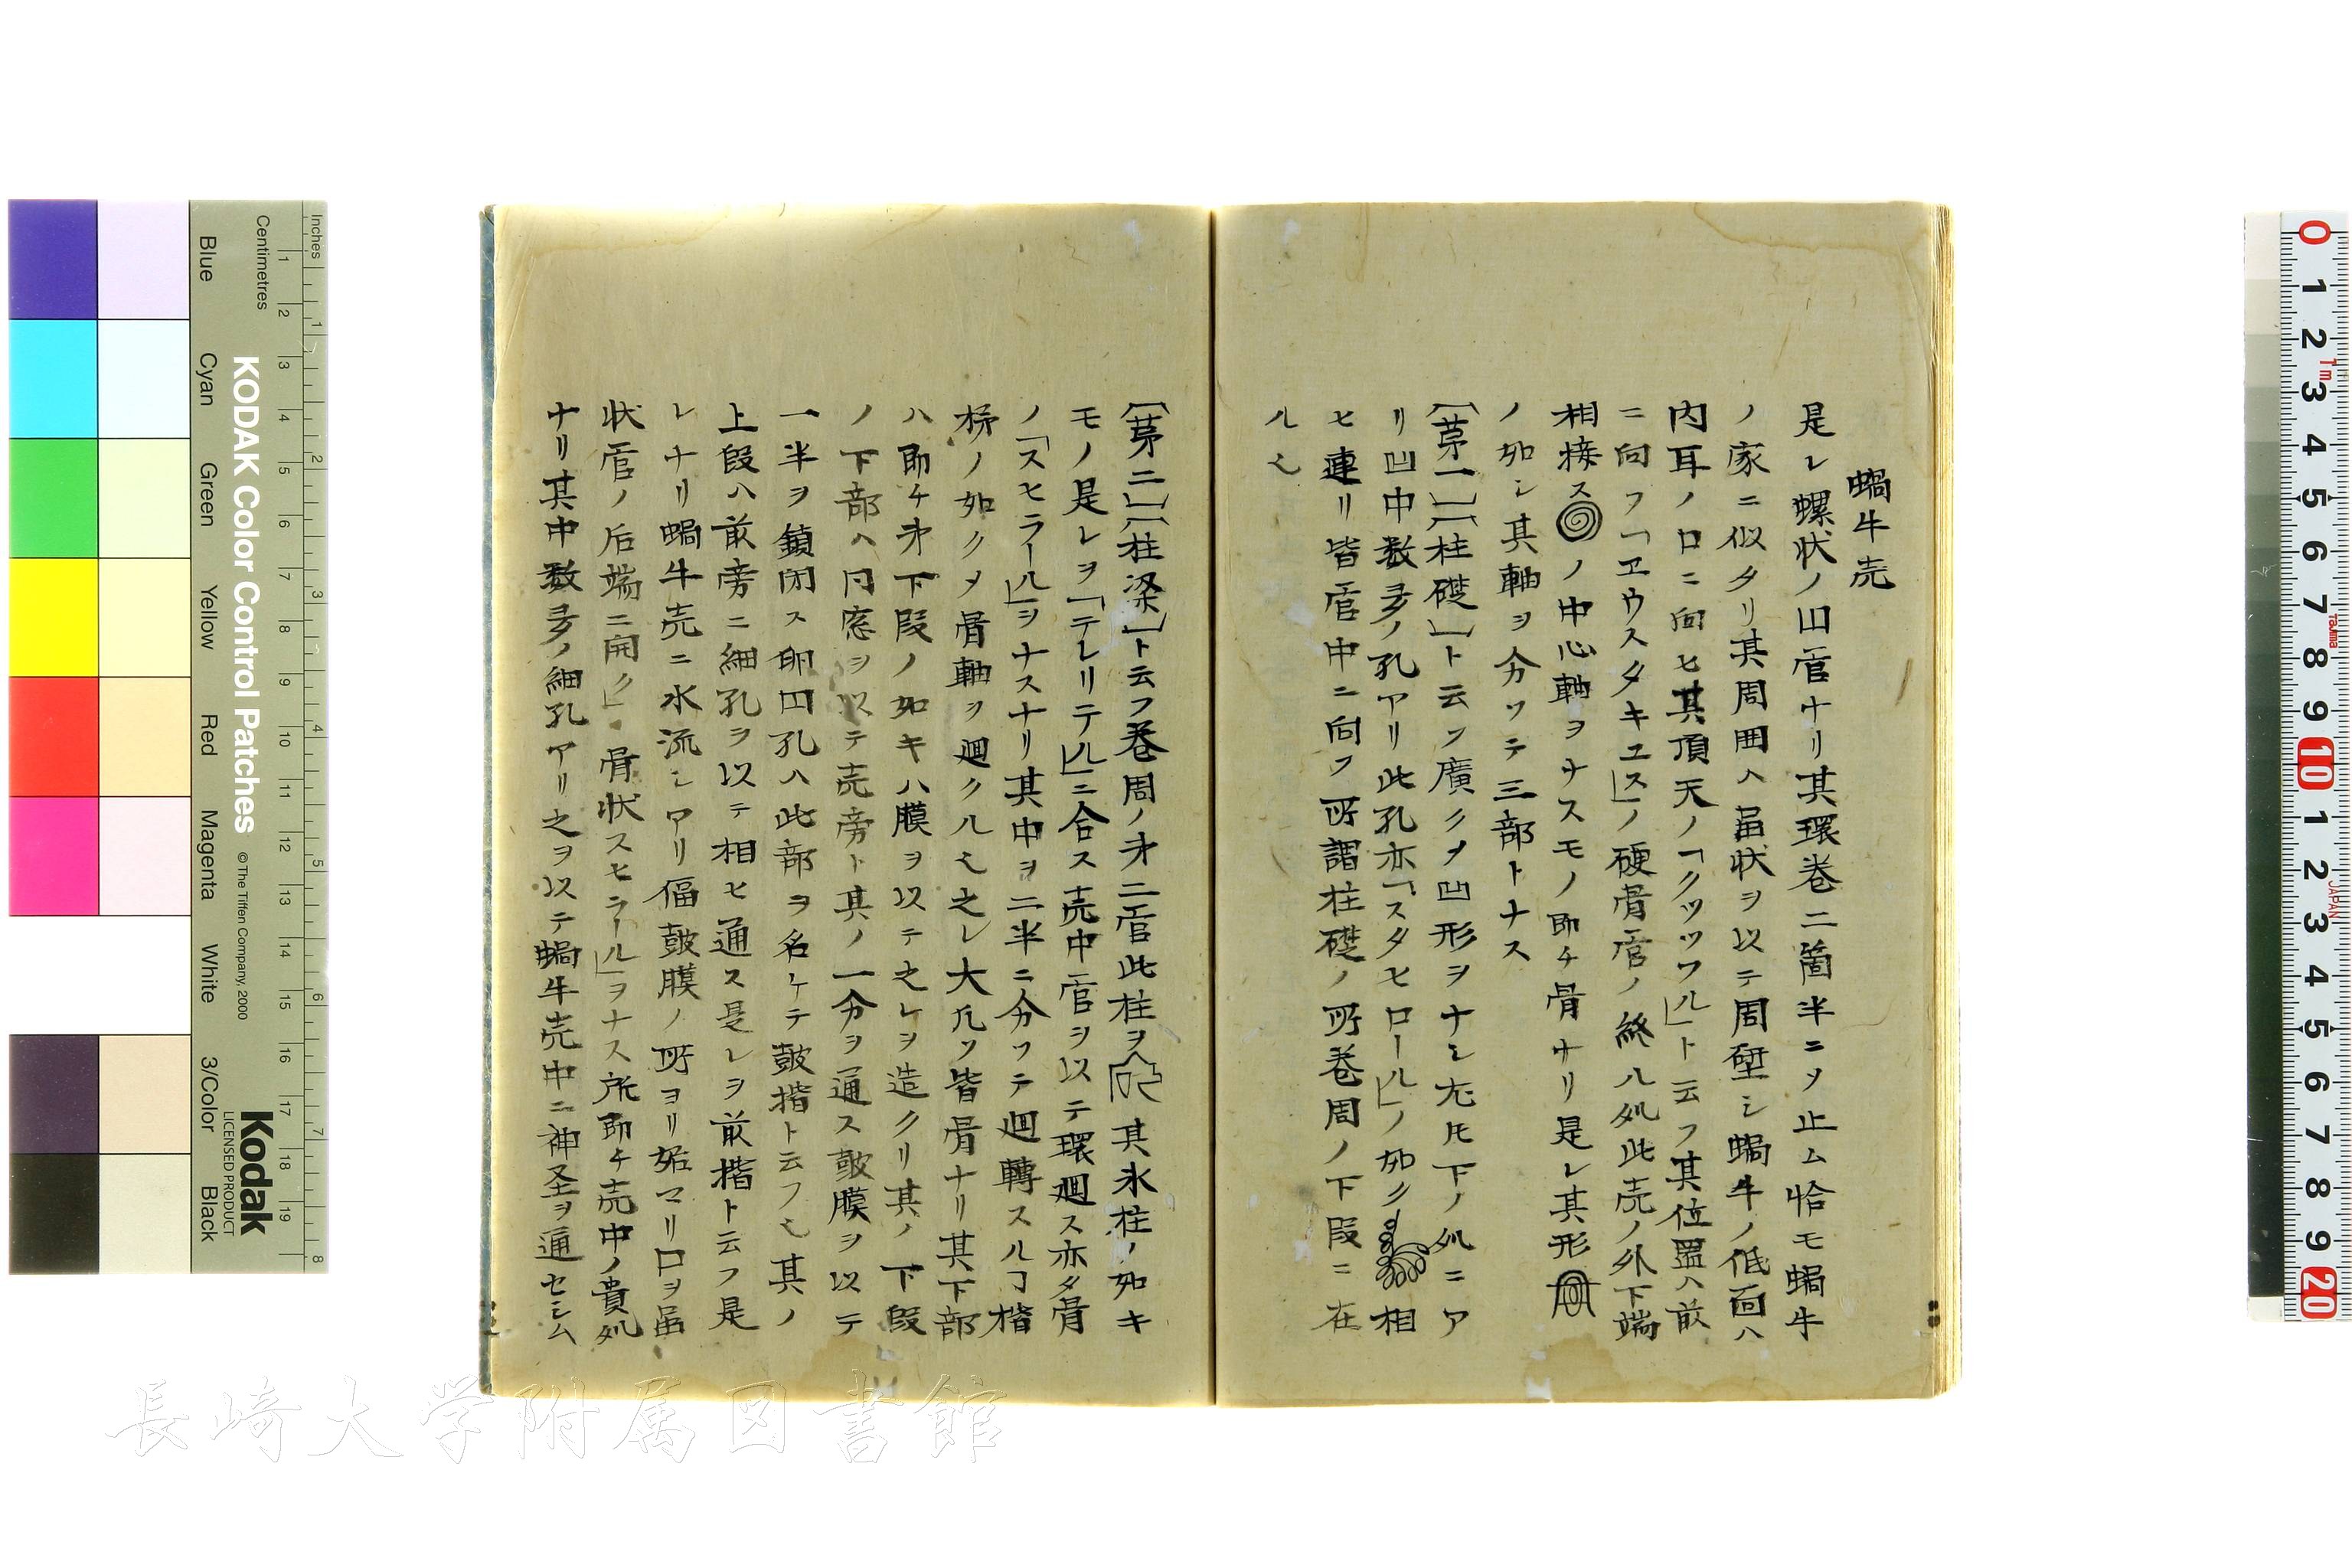 蝸牛売
是レ螺状ノ凹管ナリ其環巻二箇半ニヲ止ム恰モ蝸牛
ノ家ニ似タリ其周囲ハ畐状ヲ以テ周壁シ蝸牛ノ低面ハ
内耳ノ口ニ向ヒ其頂天ノ「クツツワル」ト云フ其位置ハ前
ニ向フ「ヱウスタキユス」ノ硬骨管ノ終ル処此売ノ外下端
相接スノ中心軸ヲナスモノ即チ骨ナリ是レ其形
ノ如シ其軸ヲ分ツテ三部トナス
〔苐一〕〔柱礎〕ト云フ廣クメ凹形ヲナシ尤モ下ノ処ニア
リ凹中数多ノ孔アリ此孔亦「スタヒロール」ノ如ク相
ヒ連リ皆管中ニ向フ所謂柱礎ノ所巻周ノ下段ニ在
ル也
〔苐二〕〔柱梁〕ト云フ巻周ノ才二管此柱ヲ其氷柱ノ如キ
モノ是レヲ「テレリテル」ニ合ス売中管ヲ以テ環廻ス亦タ骨
ノ「スヒラール」ヲナスナリ其中ヲ二半ニ分ツテ廻轉スルヿ楷
梯ノ如クメ骨軸ヲ廻クル也之レ大凡ソ皆骨ナリ其下部
ハ即チ才下段ノ如キハ膜ヲ以テ之レヲ造クリ其ノ下段
ノ下部ヘ円窓ヲ以テ売旁ト其ノ一分ヲ通ス鼓膜ヲ以テ
一半ヲ鎖閉ス卵凹孔ハ此部ヲ名ケテ鼓楷ト云フ也其ノ
上段ハ前旁ニ細孔ヲ以テ相ヒ通ス是レヲ前楷ト云フ是
レナリ蝸牛売ニ水流シアリ偪鼓膜ノ所ヨリ始マリ口ヲ畐
状管ノ后端ニ開ク」骨状スヒラール」ヲナス所即チ売中ノ貴処
ナリ其中数多ノ細孔アリ之ヲ以テ蝸牛売中ニ神圣ヲ通セシム
長崎大学附属図書館
Inches
Centimetres
KODAK Color Control Patches
©The Tiffen Company, 2000
Kodak
LICENSED PRODUCT
Blue
Cyan
Green
Yellow
Red
Magenta
White
3/Color
Black
1 2 3 4 5 6 7 8 9 10 11 12 13 14 15 16 17 18 19
1 2 3 4 5 6 7 8
0 1 2 3 4 5 6 7 8 9 10 1 2 3 4 5 6 7 8 9 20
1m
Tajima
JAPAN